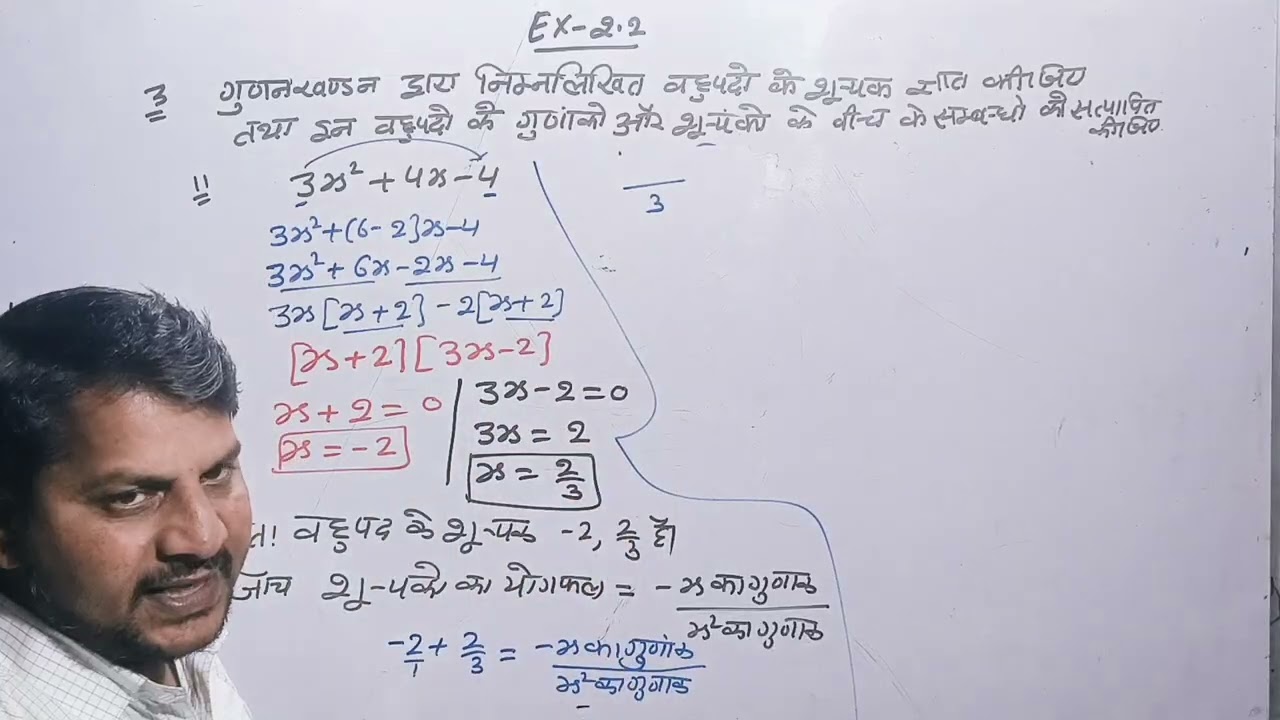 EX-2.2
3 गुणनखण्डन द्वारा निम्नलिखित बहुपदो के शून्यक ज्ञात कीजिए
तथा इन बहुपदो के गुणांको और शून्यंको के बीच के सम्बन्धो को सत्यापित कीजिए
11 3x² + 4x - 4
3x² + (6 - 2)x - 4
3x² + 6x - 2x - 4
3x[x + 2] - 2[x + 2]
[x + 2][3x - 2]
x + 2 = 0
x = -2
3x - 2 = 0
3x = 2
x = 2/3
बहुपद के शून्यक -2, 2/3 है।
जाच शून्यको का योगफल = -x का गुणांक / x² का गुणांक
-2/1 + 2/3 = -x का गुणांक / x² का गुणांक
3